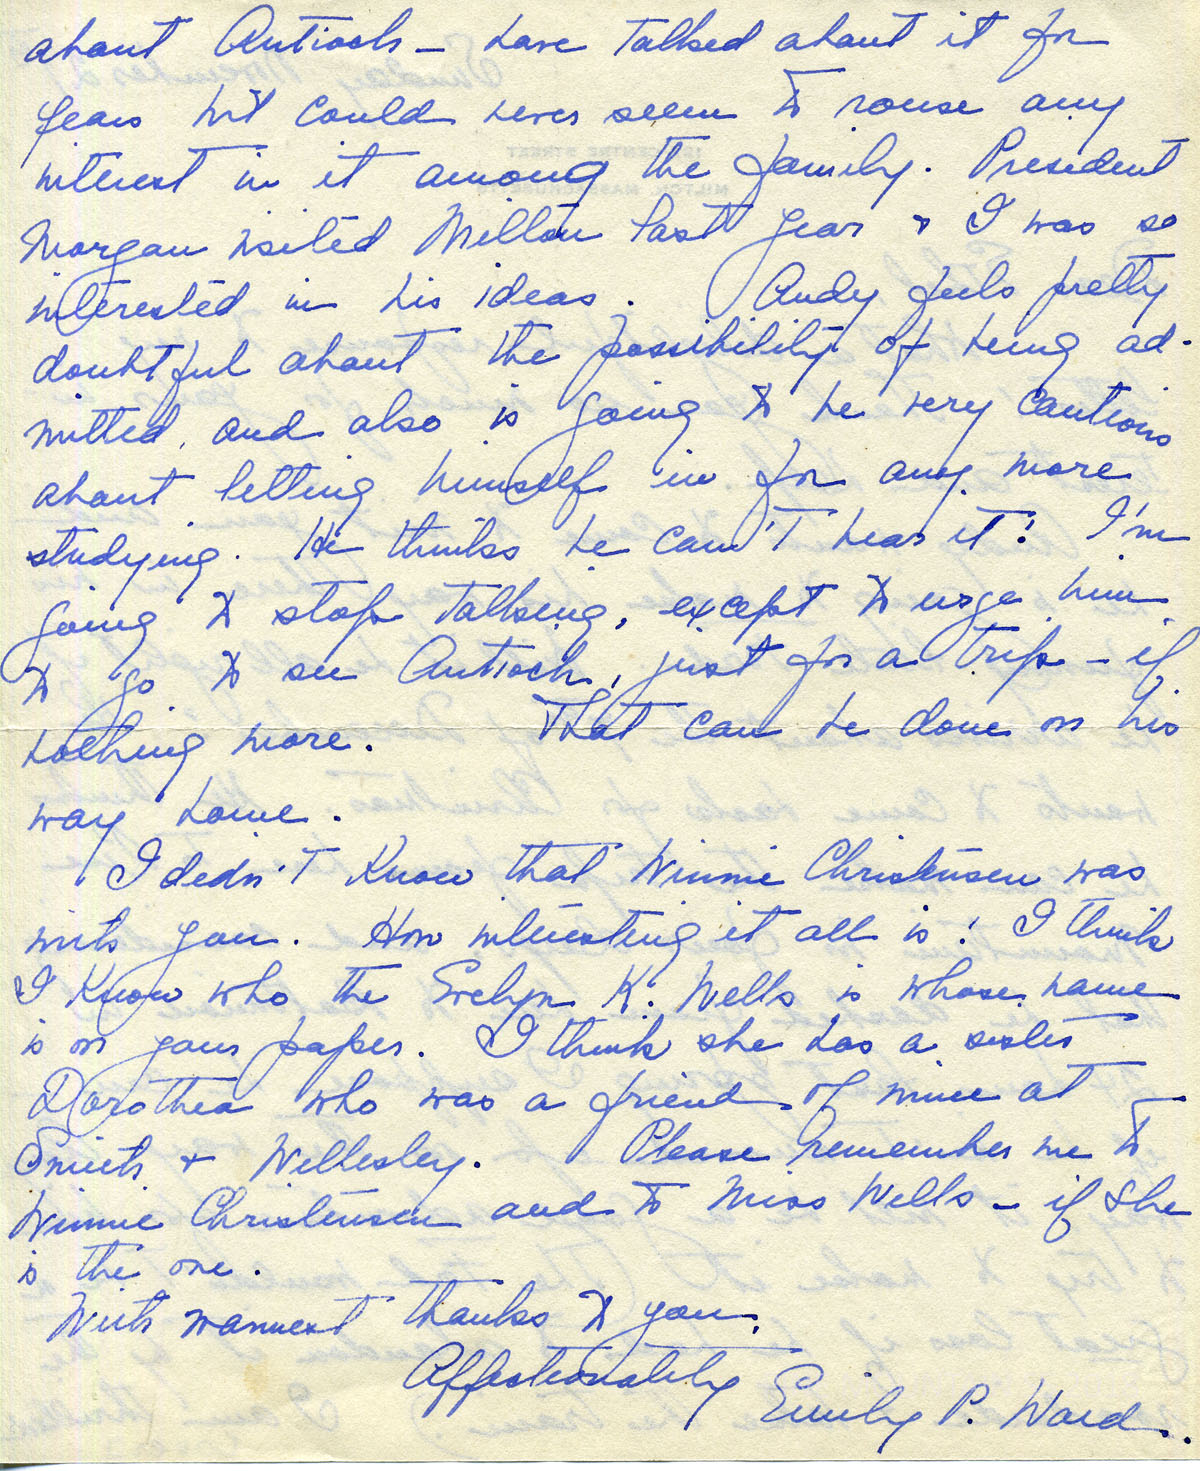 about Antioch – have talked about it for
years but could never seem to rouse any
interest in it among the family. President
Morgan visited Milton last year & I was so
interested in his ideas. Andy feels pretty
doubtful about the possibility of being ad-
mitted, and also is going to be very cautious
about letting himself in for any more
studying. He thinks he can't bear it! I'm
going to stop talking, except to urge him
to go to see Antioch, just for a trip – if
nothing more. That can be done on his
way home.
I didn't know that Winnie Christensen was
with you. How interesting it all is! I think
I know who the Evelyn K. Wells is whose name
is on your paper. I think she has a sister
Dorothea who was a friend of mine at
Smith & Wellesley. Please remember me to
Winnie Christensen and to Miss Wells – if she
is the one.
With warmest thanks to you,
Affectionately Emily P. Ward.